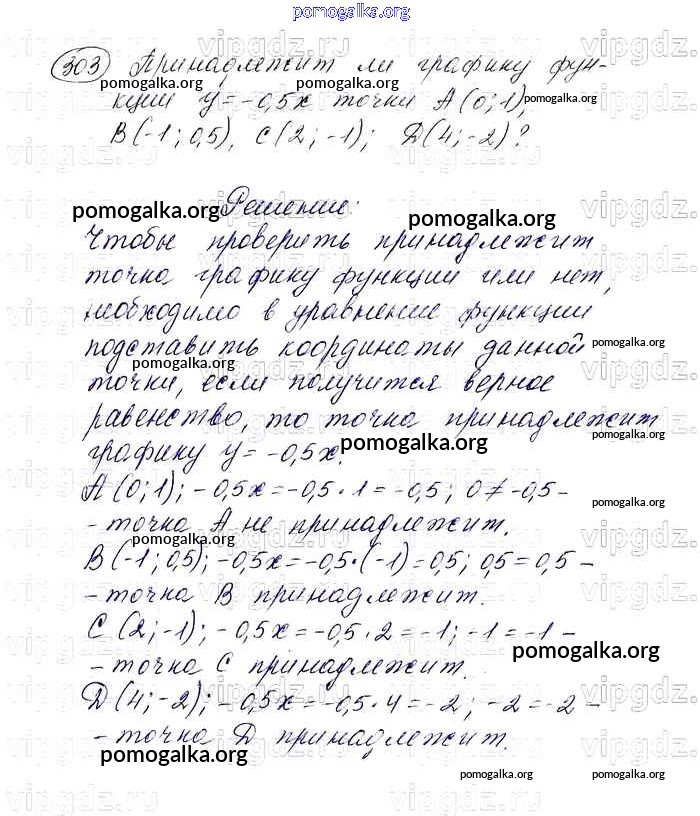 pomogalka.org
303 Принадлежит ли графику фун-
pomogalka.org pomogalka.org
кции y = -0,5x точки A(0;1), pomogalka.org
B(-1;0,5), C(2;-1); D(4;-2)?
Решение:
pomogalka.org pomogalka.org
Чтобы проверить принадлежит
точка графику функции или нет,
необходимо в уравнение функции
подставить координаты данной pomogalka.org
pomogalka.org
точки, если получится верное
равенство, то точка принадлежит
графику y = -0,5x. pomogalka.org
A(0;1); -0,5x = -0,5·1 = -0,5; 0 ≠ -0,5 -
pomogalka.org
- точка A не принадлежит.
pomogalka.org
B(-1;0,5); -0,5x = -0,5·(-1) = 0,5; 0,5 = 0,5 -
- точка B принадлежит.
C(2;-1); -0,5x = -0,5·2 = -1; -1 = -1 -
pomogalka.org
- точка C принадлежит.
D(4;-2); -0,5x = -0,5·4 = -2; -2 = -2 -
- точка D принадлежит.
pomogalka.org
pomogalka.org pomogalka.org